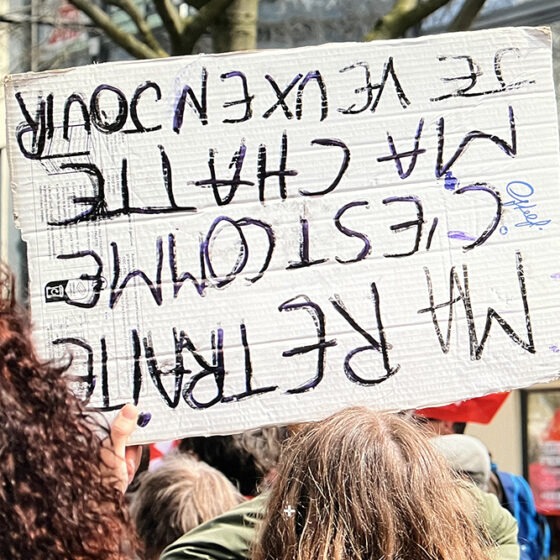 MA RETRAITE
C'EST COMME
MA CHATTE
JE VEUX EN JOUIR